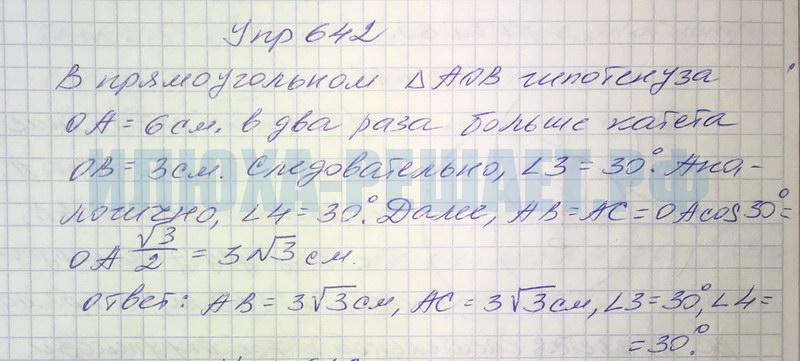 Упр 642
В прямоугольном △AOB гипотенуза
OA = 6см. в два раза больше катета
OB = 3см. Следовательно, ∠3 = 30°. Ана-
логично, ∠4 = 30°. Далее, AB = AC = OA cos 30° =
OA √3/2 = 3√3 см.
Ответ: AB = 3√3 см, AC = 3√3 см, ∠3 = 30°, ∠4 =
= 30°.
ИЛЮХА-РЕШАЕТ.РФ